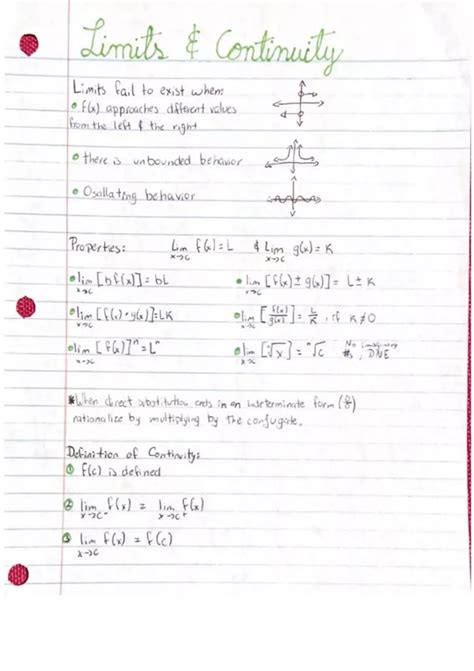 Limits & Continuity
Limits fail to exist when:
• f(x) approaches different values
from the left & the right
• there is unbounded behavior
• Osallating behavior
Properties: lim x→c f(x)=L & lim x→c g(x)=K
• lim x→c [bf(x)]=bL • lim x→c [f(x)±g(x)]= L±K
• lim x→c [f(x)·g(x)]=LK • lim x→c [f(x)/g(x)]= L/K, if K≠0
• lim x→c [f(x)]ⁿ=Lⁿ • lim x→c [ⁿ√x]= ⁿ√c No imaginary
#s, DNE
*When direct substitution ends in an indeterminate form (0/0)
rationalize by multiplying by the conjugate.
Definition of Continuity:
① f(c) is defined
② lim x→c⁻ f(x) = lim x→c⁺ f(x)
③ lim x→c f(x) = f(c)